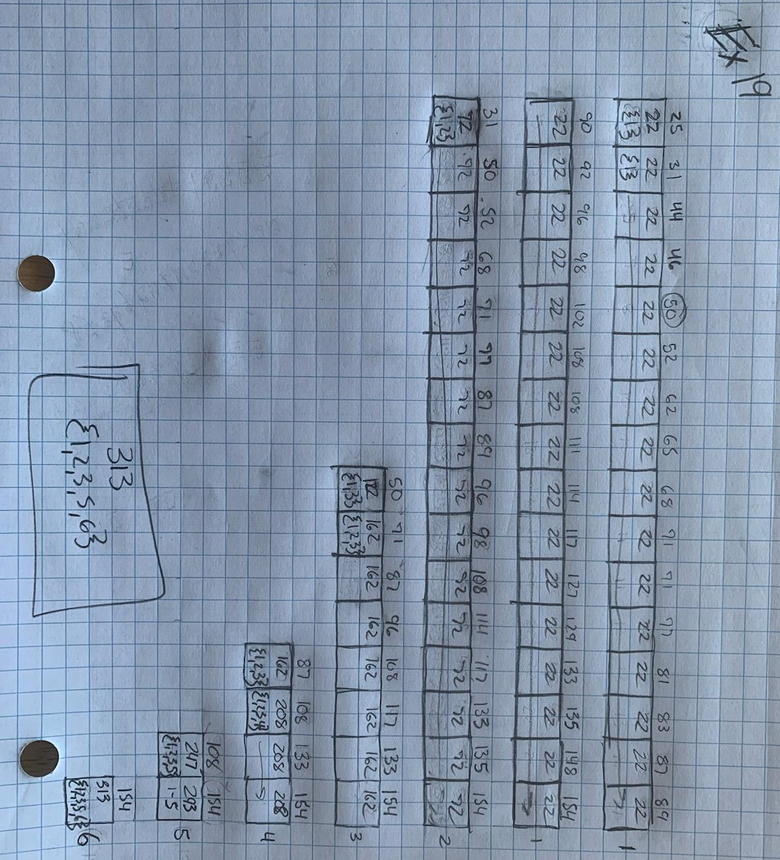 Ex 19
25 31 44 46 50 52 62 65 68 71 71 77 81 83 87 89
22 22 22 22 22 22 22 22 22 22 22 22 22 22 22 22
{1} {1} 1
90 92 96 98 102 108 108 111 114 117 127 129 133 135 148 154
22 22 22 22 22 22 22 22 22 22 22 22 22 22 22 22
1
31 50 52 68 71 77 87 89 96 98 108 114 117 133 135 154
72 72 72 72 72 72 72 72 72 72 72 72 72 72 72 72
{1,2} 2
50 71 87 96 108 117 133 154
162 162 162 162 162 162 162
{1,3} {1,2,3} 3
87 108 133 154
162 208 208 208
{1,2,3} 4
108 154
247 293
{1,2,3,5} 1-5 5
154
313
{1,2,3,5,6} 6
313
{1,2,3,5,6}